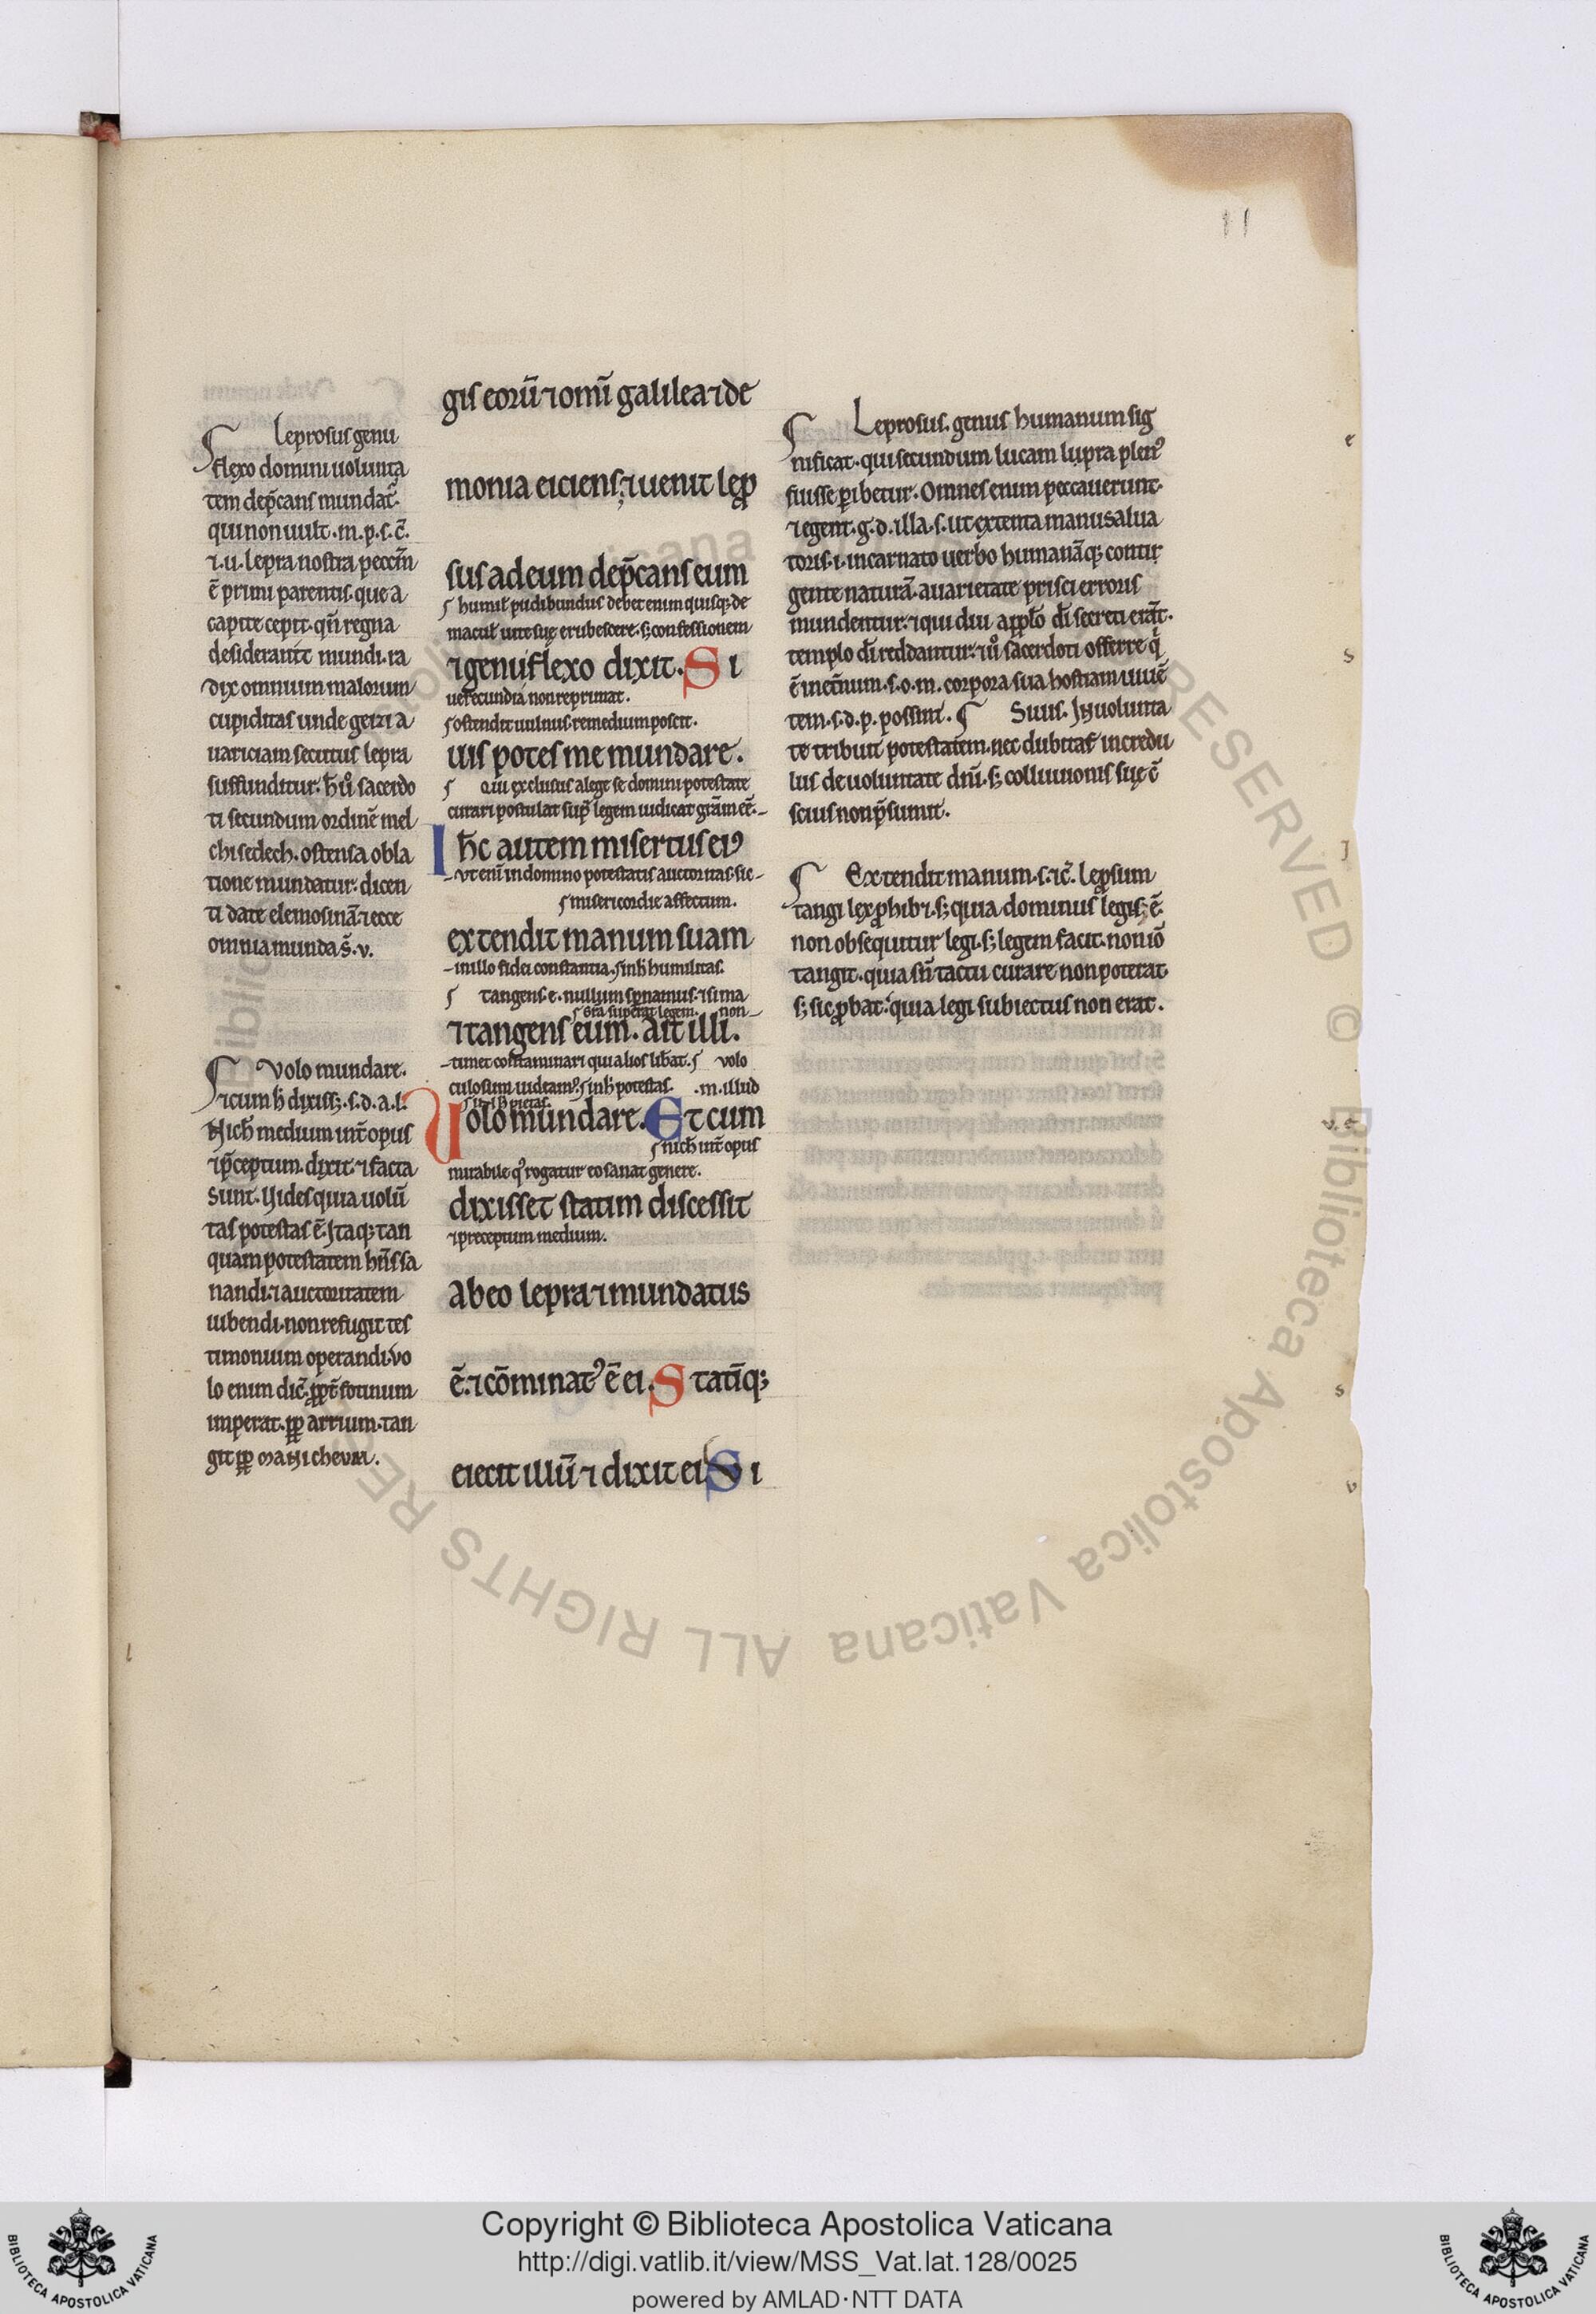 11
¶ Leprosus genu
flexo domini uolunta
tem dep̃cans mundat᷑.
qui non uult .m.p.s.c̃.
⁊.u. lepra nostra pecc̃m
ẽ primi parentis. que a
capite cepit. qñ regna
desiderauit mundi. ra
dix omnium malorum
cupiditas unde gezi a
uariciam secutus lepra
suffunditur. h̄ uº sacerdo
ti secundum ordinẽ mel
chisedech. ostensa obla
tione mundatur. dicen
ti date elemosinã. ⁊ ecce
omnia munda s̃.v.
¶ Volo mundare.
⁊cum h̄ dixiss; .s.d.a.l.
Nich̄ medium int̃ opus
⁊ p̃ceptum. dixit. ⁊ facta
sunt. Vides quia uolũ
tas potestas ẽ. Itaq; tan
quam potestatem hñs sa
nandi. ⁊ auctoritatem
iubendi. non refugit tes
timonium operandi. vo
lo enim dic̃. ꝓpt̃ fotinum
imperat. ꝓp arrium. tan
git ꝓp manicheum.
gis eorũ ⁊ omĩ galilea ⁊ de
monia eiciens; ⁊ uenit lep̱
sus ad eum dep̃cans eum
ʃ humil᷑ pudibundus debet enim quisq; de
macul᷑ uite suę erubescere. s; confessionem
⁊ genu flexo dixit. Si
uerecundia non reprimat.
ʃ ostendit uulnus. remedium poscit.
uis potes me mundare.
ʃ Qui exclusus a lege se domini potestate
curari postulat sup̱ legem iudicat grãm eẽ.
Ih̄c autem misertus eiꝰ
vt enĩ in domino potestatis auctoritas. sic
ʃ misericordie affectum.
extendit manum suam
in illo fidei constantia. ʃ in h̄ humilitas.
ʃ tangens. e. nullum sp̱namus. ⁊ si ma
ʃ Grã superat legem. non
⁊ tangens eum. ait illi.
timet contaminari qui alios lib̃at. ʃ volo
culosum uideamꝰ. ʃ in h̄ potestas. .m. illud
Volo mundare. Et cum
ʃ nich̄ int̃ opus
mirabile q̊ rogatur eo sanat genere.
dixisset statim discessit
⁊ preceptum medium.
ab eo lepra ⁊ mundatus
ẽ. ⁊ cõminatꝰ ẽ ei. Statĩq;
eiecit illũ ⁊ dixit ei Si
¶ Leprosus. genus humanum sig
nificat. qui secundum lucam lepra plenꝰ
fuisse ꝑibetur. Omnes enim peccauerunt.
⁊ egent. g. d. illa. s. ut extenta manu salua
toris. i. incarnato uerbo humanãq; contin
gente naturã. a uarietate prisci erroris
mundentur. ⁊ qui diu a pp̱lo dī secreti erãt.
templo dī reddantur. ⁊ uº sacerdoti offerre q̇
ẽ in et̃num. s. o. m. corpora sua hostiam uiuẽ
tem. s. d. p. possint. ¶ Si uis. In uolunta
te tribuit potestatem. nec dubitat᷑ incredu
lus de uoluntate dnĩ. s; colluuionis suę c̃
scius non p̃sumit.
¶ Extendit manum. s. ic̃. lep̱sum
tangi lex ꝓhibꝫ. s; quia dominus legis ẽ.
non obsequitur legi. s; legem facit. non iõ
tangit. quia sñ tactu curare non poterat.
s; sic ꝓbat. quia legi subiectus non erat.
Copyright © Biblioteca Apostolica Vaticana
http://digi.vatlib.it/view/MSS_Vat.lat.128/0025
powered by AMLAD·NTT DATA
BIBLIOTECA APOSTOLICA VATICANA
BIBLIOTECA APOSTOLICA VATICANA